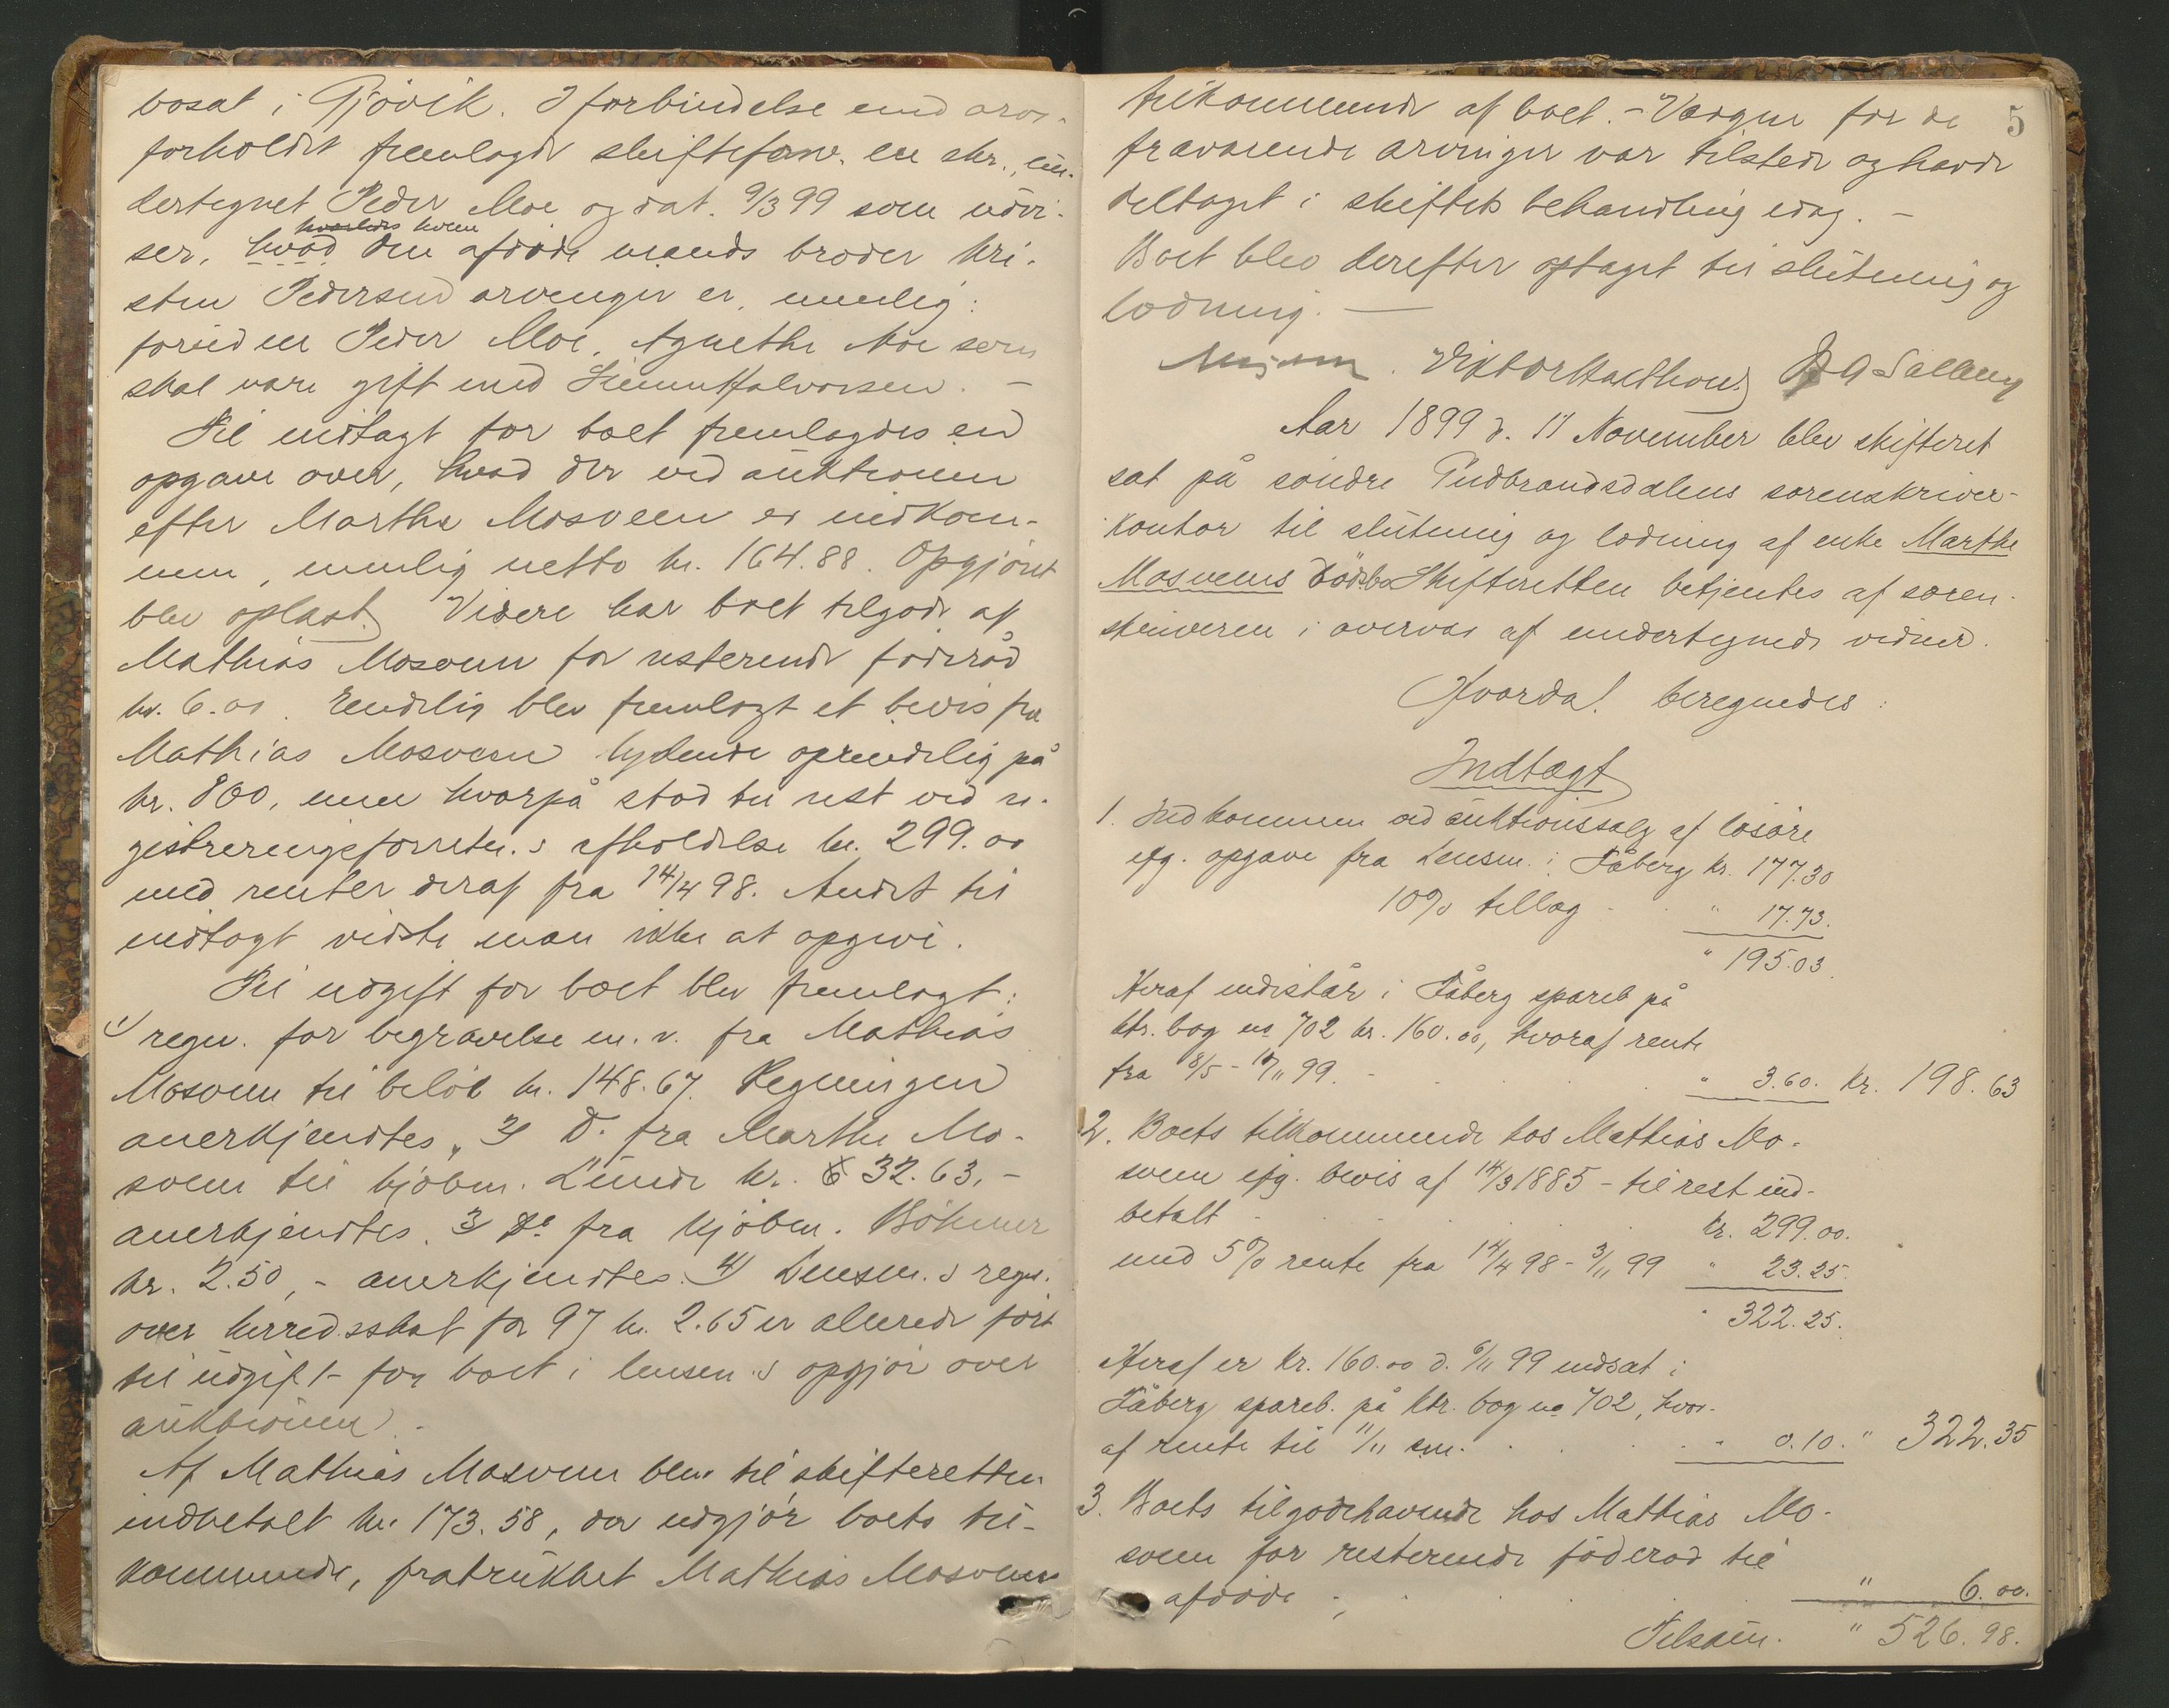 bosat i Gjövik. I forbindelse med arve-
forholdet fremlagde skifteforv. en skr., un-
dertegnet Peder Moe og dat. 9/3 99 som udvi-
hvem
ser, hvad den afdöde mands broder Kri-
sten Pedersens arvinger er, nemlig:
foruden Peder Moe, Agnethe Moe som
skal være gift med Simen Halvorsen. –
Til indtægt for boet fremlagdes en
opgave over, hvad der ved auktionen
efter Marthe Mosveen er indkom-
men, nemlig netto kr. 164.88. Opgjöret
blev oplæst. Videre har boet tilgode af
Mathias Mosveen for resterende föderåd
kr. 6.00. Endelig blev fremlagt et bevis fra
Mathias Mosveen lydende oprindelig på
kr. 800, men hvorpå stod til rest ved re-
gistreringsforretn.s afholdelse kr. 299.00
med renter deraf fra 14/4 98. Andet til
indtægt vidste man ikke at opgive.
Til udgift for boet blev fremlagt:
1) regn. for begravelse m. v. fra Mathias
Mosveen til beløb kr. 148.67. Regningen
anerkjendtes, 2) Do fra Marthe Mo-
sveen til kjöbm. Lunde kr. 32.63, –
anerkjendtes. 3) Do fra kjöbm. Böhmer
kr. 2.50, – anerkjendtes. 4) Lensm.s regn.
over herredsskat for 97 kr. 2.65 er allerede fört
til udgift for boet i lensm.s opgjör over
auktionen. –
Af Mathias Mosveen blev til skifteretten
indbetalt kr. 173.58, der udgjör boets til-
kommende, fratrukket Mathias Mosveens
5
tilkommende af boet. – Værgen for de
fraværende arvinger var tilstede og havde
deltaget i skiftets behandling idag. –
Boet blev derefter optaget til slutning og
lodning. –
Viktor Aar 1899 d. 11 November blev skifteret
sat på söndre Gudbrandsdalens sorenskriver-
kontor til slutning og lodning af enke Marthe
Mosveens dödsbo. Skifteretten betjentes af soren-
skriveren i overvær af undertegnede vidner.
Hvorda! beregnedes:
Indtægt
1. Indkommen ved auktionssalg af lösöre
ifg. opgave fra Lensm. i Fåberg kr. 177.30
10% tillæg " 17.73.
" 195.03.
Heraf indestår i Fåberg spareb på
ktr. bog no 702 kr. 160.00, hvoraf rente
fra 18/5 - 11/11 99. " 3.60. kr. 198.63
2. Boets tilkommende hos Mathias Mo-
sveen ifg. bevis af 14/3 1885 – til rest ind-
betalt kr. 299.00.
med 5% rente fra 14/4 98 - 3/11 99 " 23.25.
" 322.25.
Heraf er kr. 160.00 d. 6/11 99 indsat i
Fåberg spareb. på ktr. bog no 702, hvor-
af rente til 11/11 s.m. " 0.10. " 322.35
3. Boets tilgodehavende hos Mathias Mo-
sveen for resterende föderåd til
afdöde " 6.00.
Tilsam. " 526.98.